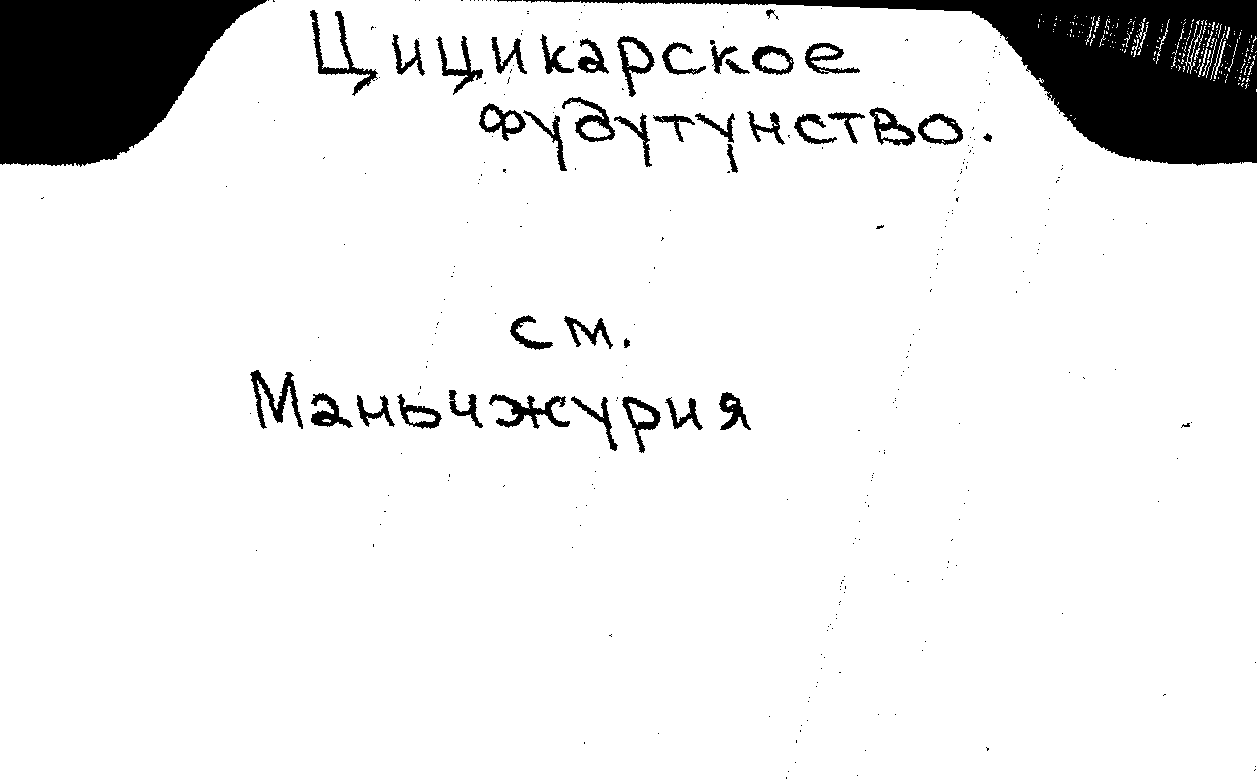 Цицикарское
фудутунство.
см.
Маньчжурия